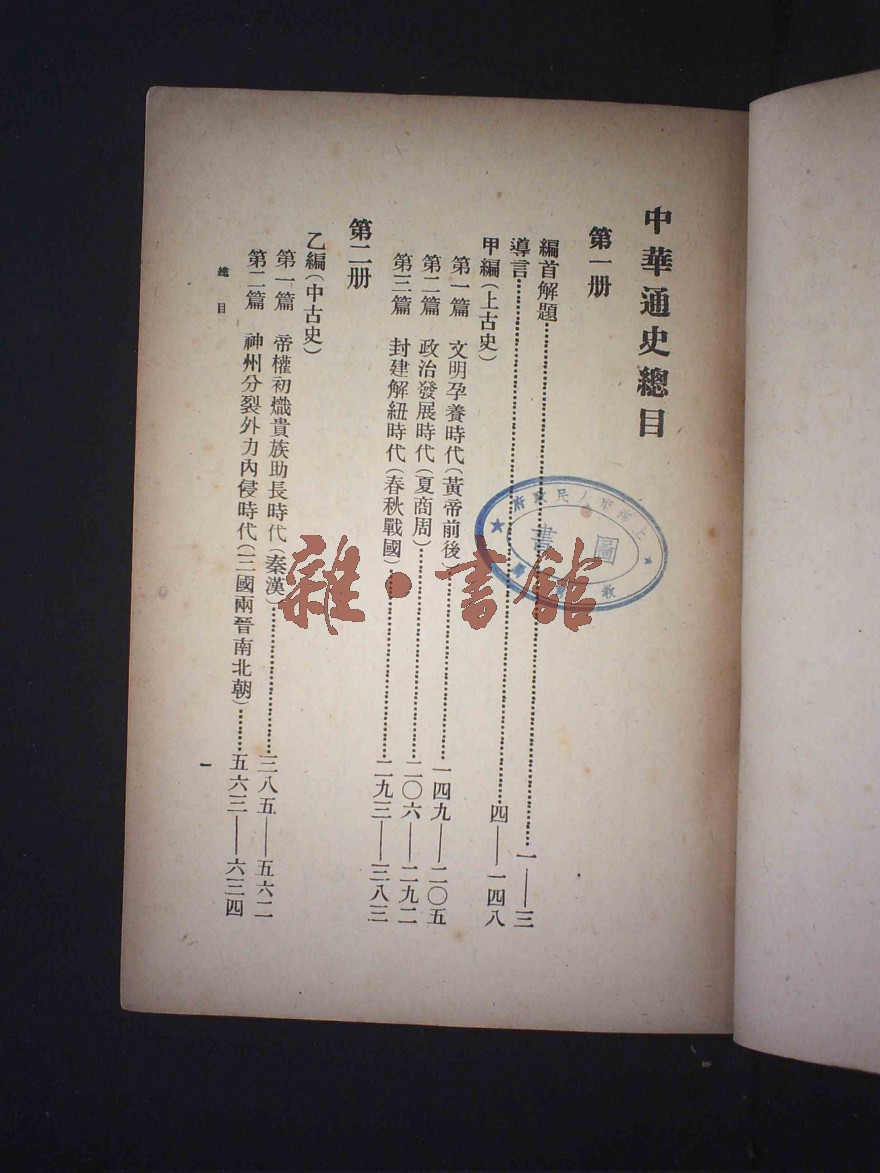 中華通史總目
第一册
編首解題……一——三
導言……四——一四八
甲編(上古史)
第一篇 文明孕養時代(黃帝前後)……一四九——二〇五
第二篇 政治發展時代(夏商周)……二〇六——二九二
第三篇 封建解紐時代(春秋戰國)……二九三——三八三
第二册
乙編(中古史)
第一篇 帝權初熾貴族助長時代(秦漢)……三八五——五六二
第二篇 神州分裂外力內侵時代(三國兩晉南北朝)……五六三——六三四
總目
一
圖書
雜·書館